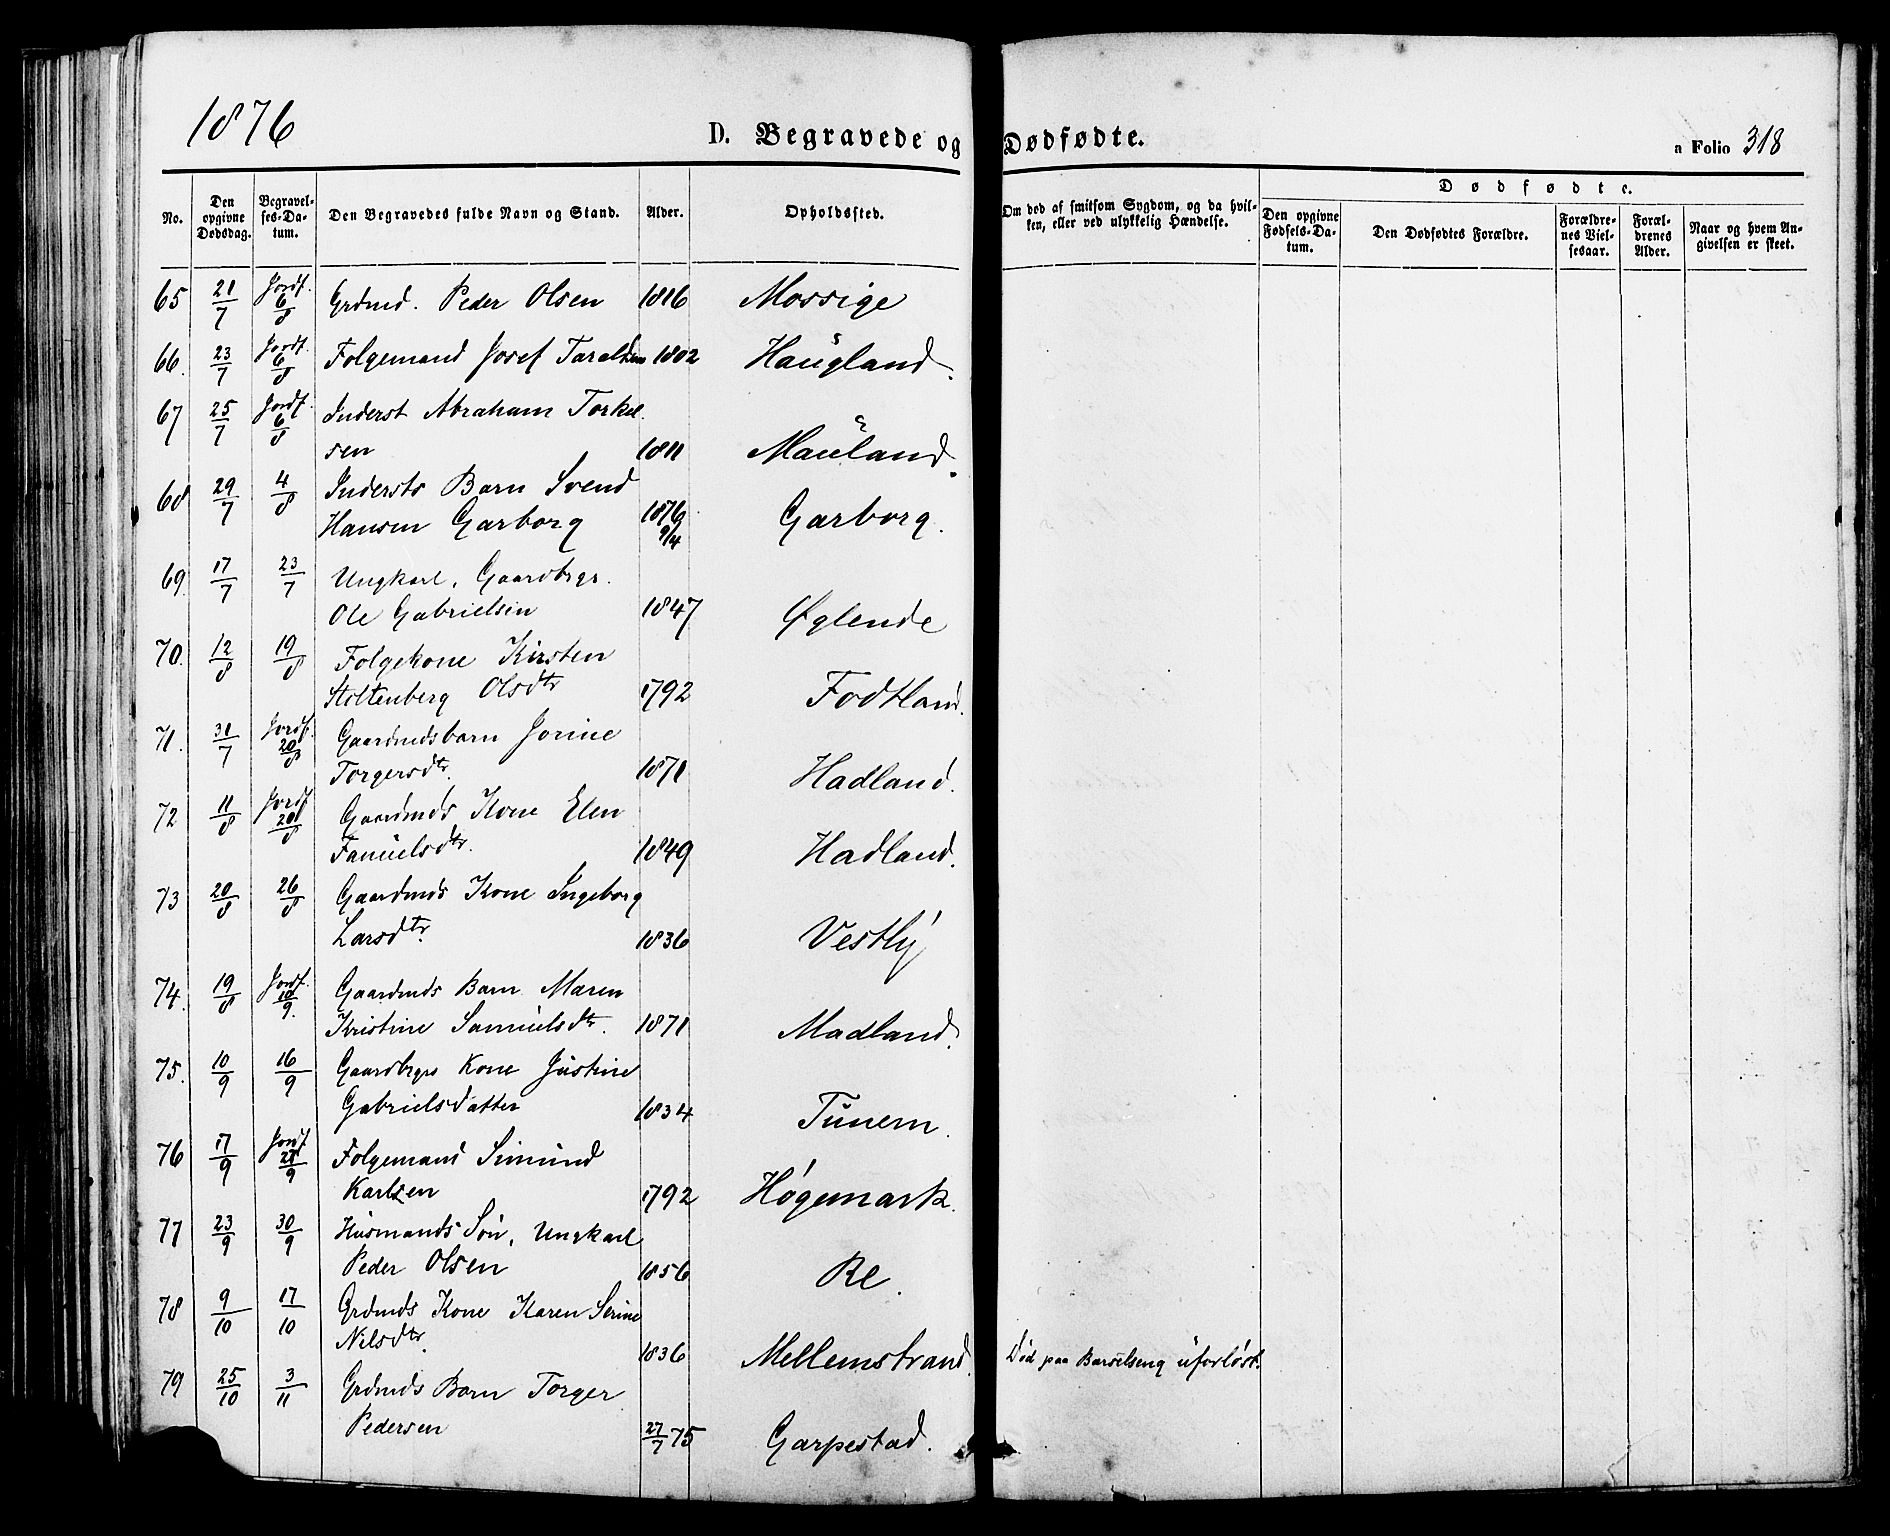 1876
D. Begravede og Dødfødte.
a Folio 318
No. Den opgivne Dødsdag. Begravelses-Datum. Den Begravedes fulde Navn og Stand. Alder. Opholdssted. Om død af smitsom Sygdom, og da hvilken, eller ved ulykkelig Hændelse. Dødfødte. Den opgivne Fødsels-Datum. Den Dødfødtes Forældre. Forældrenes Vielsesaar. Forældrenes Alder. Naar og hvem Angivelsen er skeet.
65 21/7 Jordf. 6/8 Grdmd. Peder Olsen 1816 Mossige
66. 23/7 Jordf. 6/8 Folgemand Josef Taraldsen 1802 Haugland.
67 25/7 Jordf. 6/8 Inderst Abraham Torkel
sen 1811 Mauland.
68 29/7 4/8 Indersts Barn Svend
Hansen Garborg 1876 9/4 Garborg.
69. 17/7 23/7 Ungkarl, Gaardbrgr.
Ole Gabrielsen 1847 Øglende
70. 12/8 19/8 Folgekone Kirsten
Stoltenberg Olsdtr 1792 Fodtland.
71. 31/7 Jordf. 20/8 Gaardmdsbarn Jorine
Torgersdtr. 1871 Hadland.
72 11/8 Jordf 20/8 Gaardmds Kone Elen
Samuelsdtr. 1849 Hadland.
73 20/8 26/8 Gaardmds Kone Ingeborg
Larsdtr. 1836 Vestly
74. 19/8 Jordf. 10/9. Gaardmds Barn Maren
Kristine Samuelsdtr. 1871 Madland.
75. 10/9 16/9 Gaardbrgrs Kone Justine
Gabrielsdatter 1834 Tunem.
76 17/9 Jordf 21/9 Folgemand Simund
Karlsen 1792 Høgemark.
77 23/9 30/9 Husmands Søn, Ungkarl
Peder Olsen 1856 Re.
78 9/10 17/10 Grdmds Kone Karen Serine
Nilsdtr. 1836 Mellemstrand. Død paa Barselseng uforløst.
79 25/10 3/11 Grdmds Barn Torger
Pedersen 27/7 75 Garpestad.